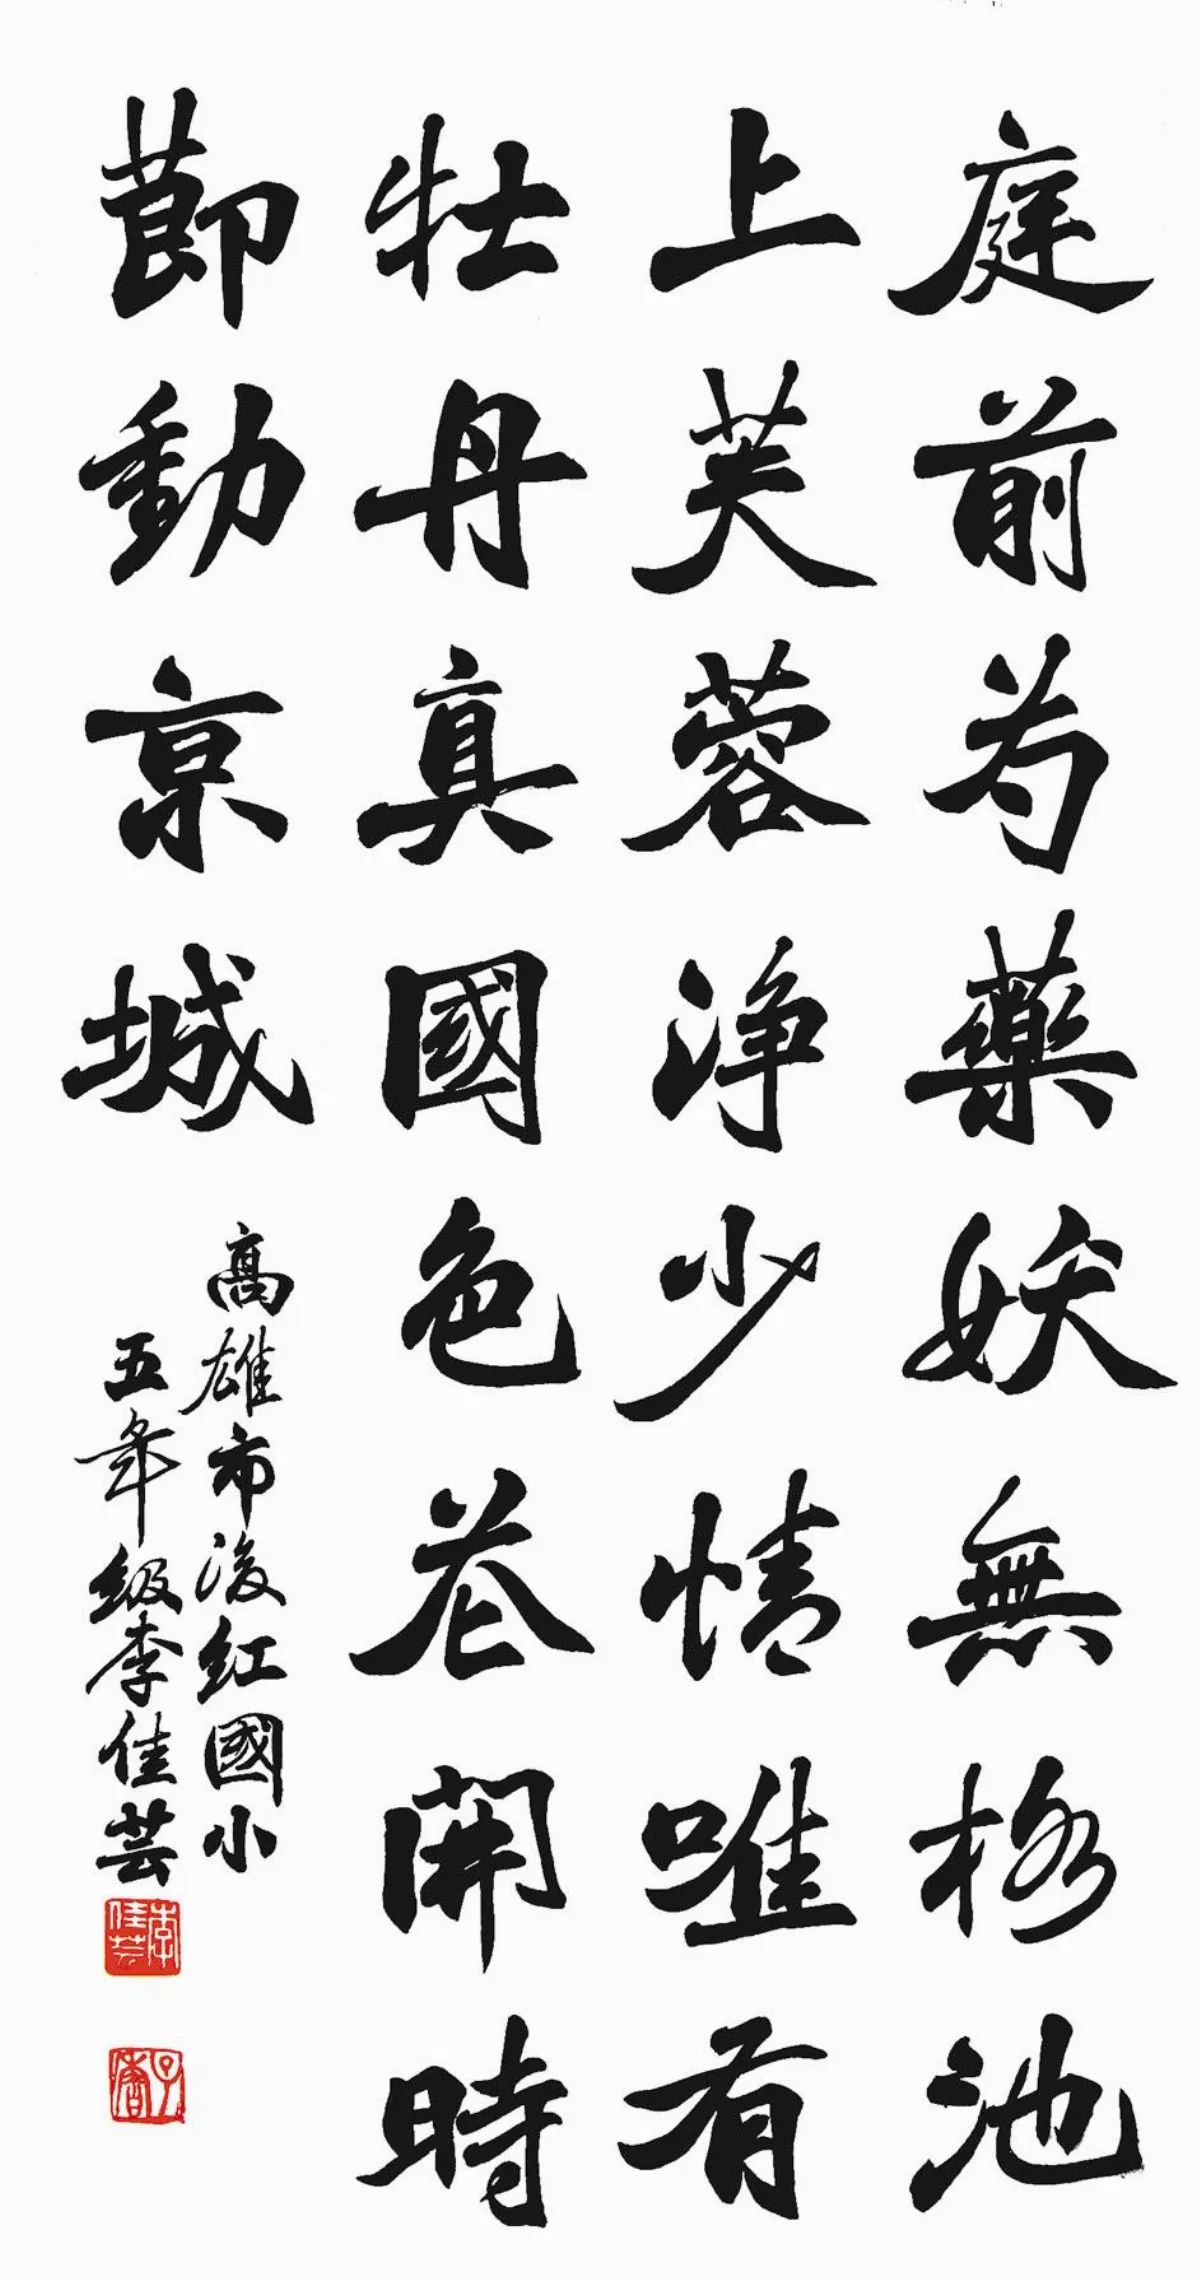 庭前芍藥妖無格池
上芙蓉淨少情唯有
牡丹真國色花開時
節動京城
高雄市後紅國小
五年級李佳芸
李佳芸